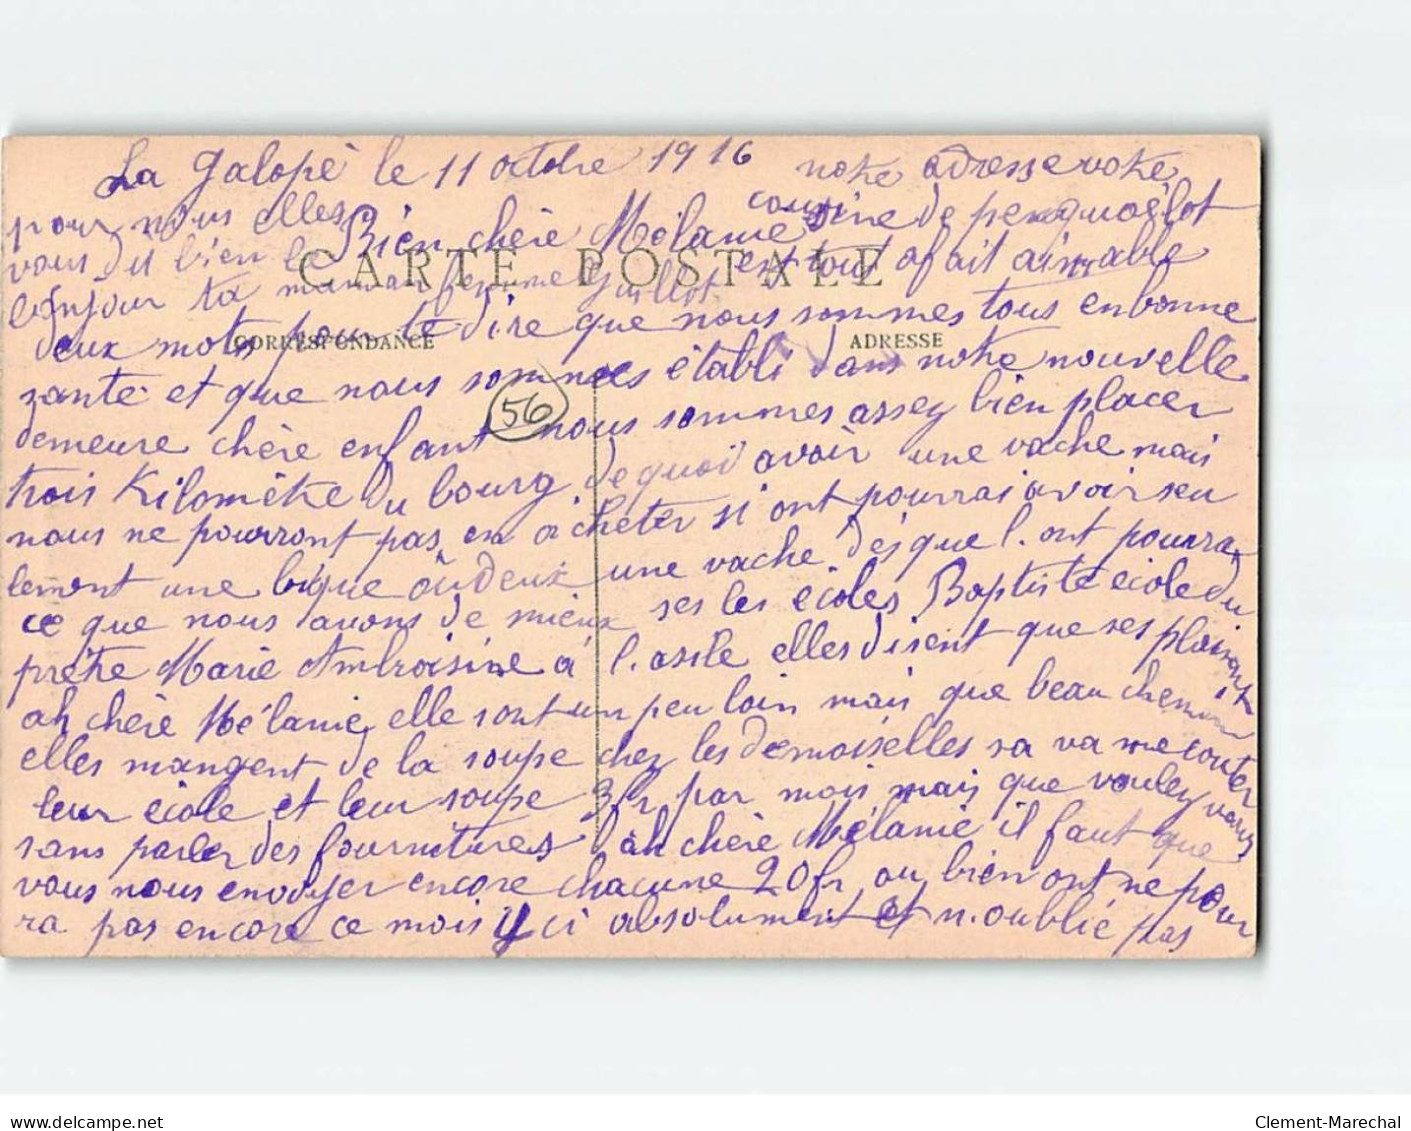 La Galopé le 11 octobre 1916 notre adresse votre
pour nous elles Bien chère Mélanie cousine de penquoëlot
vous dit bien le est tout afait aimable
CARTE POSTALE
bonjour ta maman femme Guillot
deux mots pour te dire que nous sommes tous enbonne
CORRESPONDANCE ADRESSE
zanté et que nous sommes établi dans notre nouvelle
56
demeure chère enfant nous sommes assez bien placer
trois Kilomètre du bourg de quoi avoir une vache mais
nous ne pourront pas en acheter si ont pourrai avoir seu
lement une bique oudeux une vache désque l'ont pourra
ce que nous avons de mieux ses les écoles Baptiste école du
prêtre Marie Ambroisine à l'asile elles disent que ses plaisant
ah chère Mélanie elle sont un peu loin mais que beau chemin
elles mangent de la soupe chez les demoiselles sa va me couter
leur école et leur soupe 3fr par mois mais que voulez vous
sans parler des fournitures ah chère Mélanie il faut que
vous nous envoyer encore chacune 20fr ou bien ont ne pour
ra pas encore ce mois ci absolument et n'oublié pas
delcampe.net
Clement-Marechal